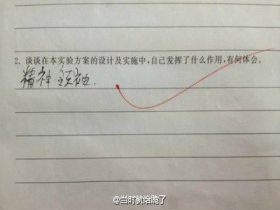 2. 谈谈在本实验方案的设计及实施中,自己发挥了什么作用,有何体会。
精神领袖.
@当时就给跪了